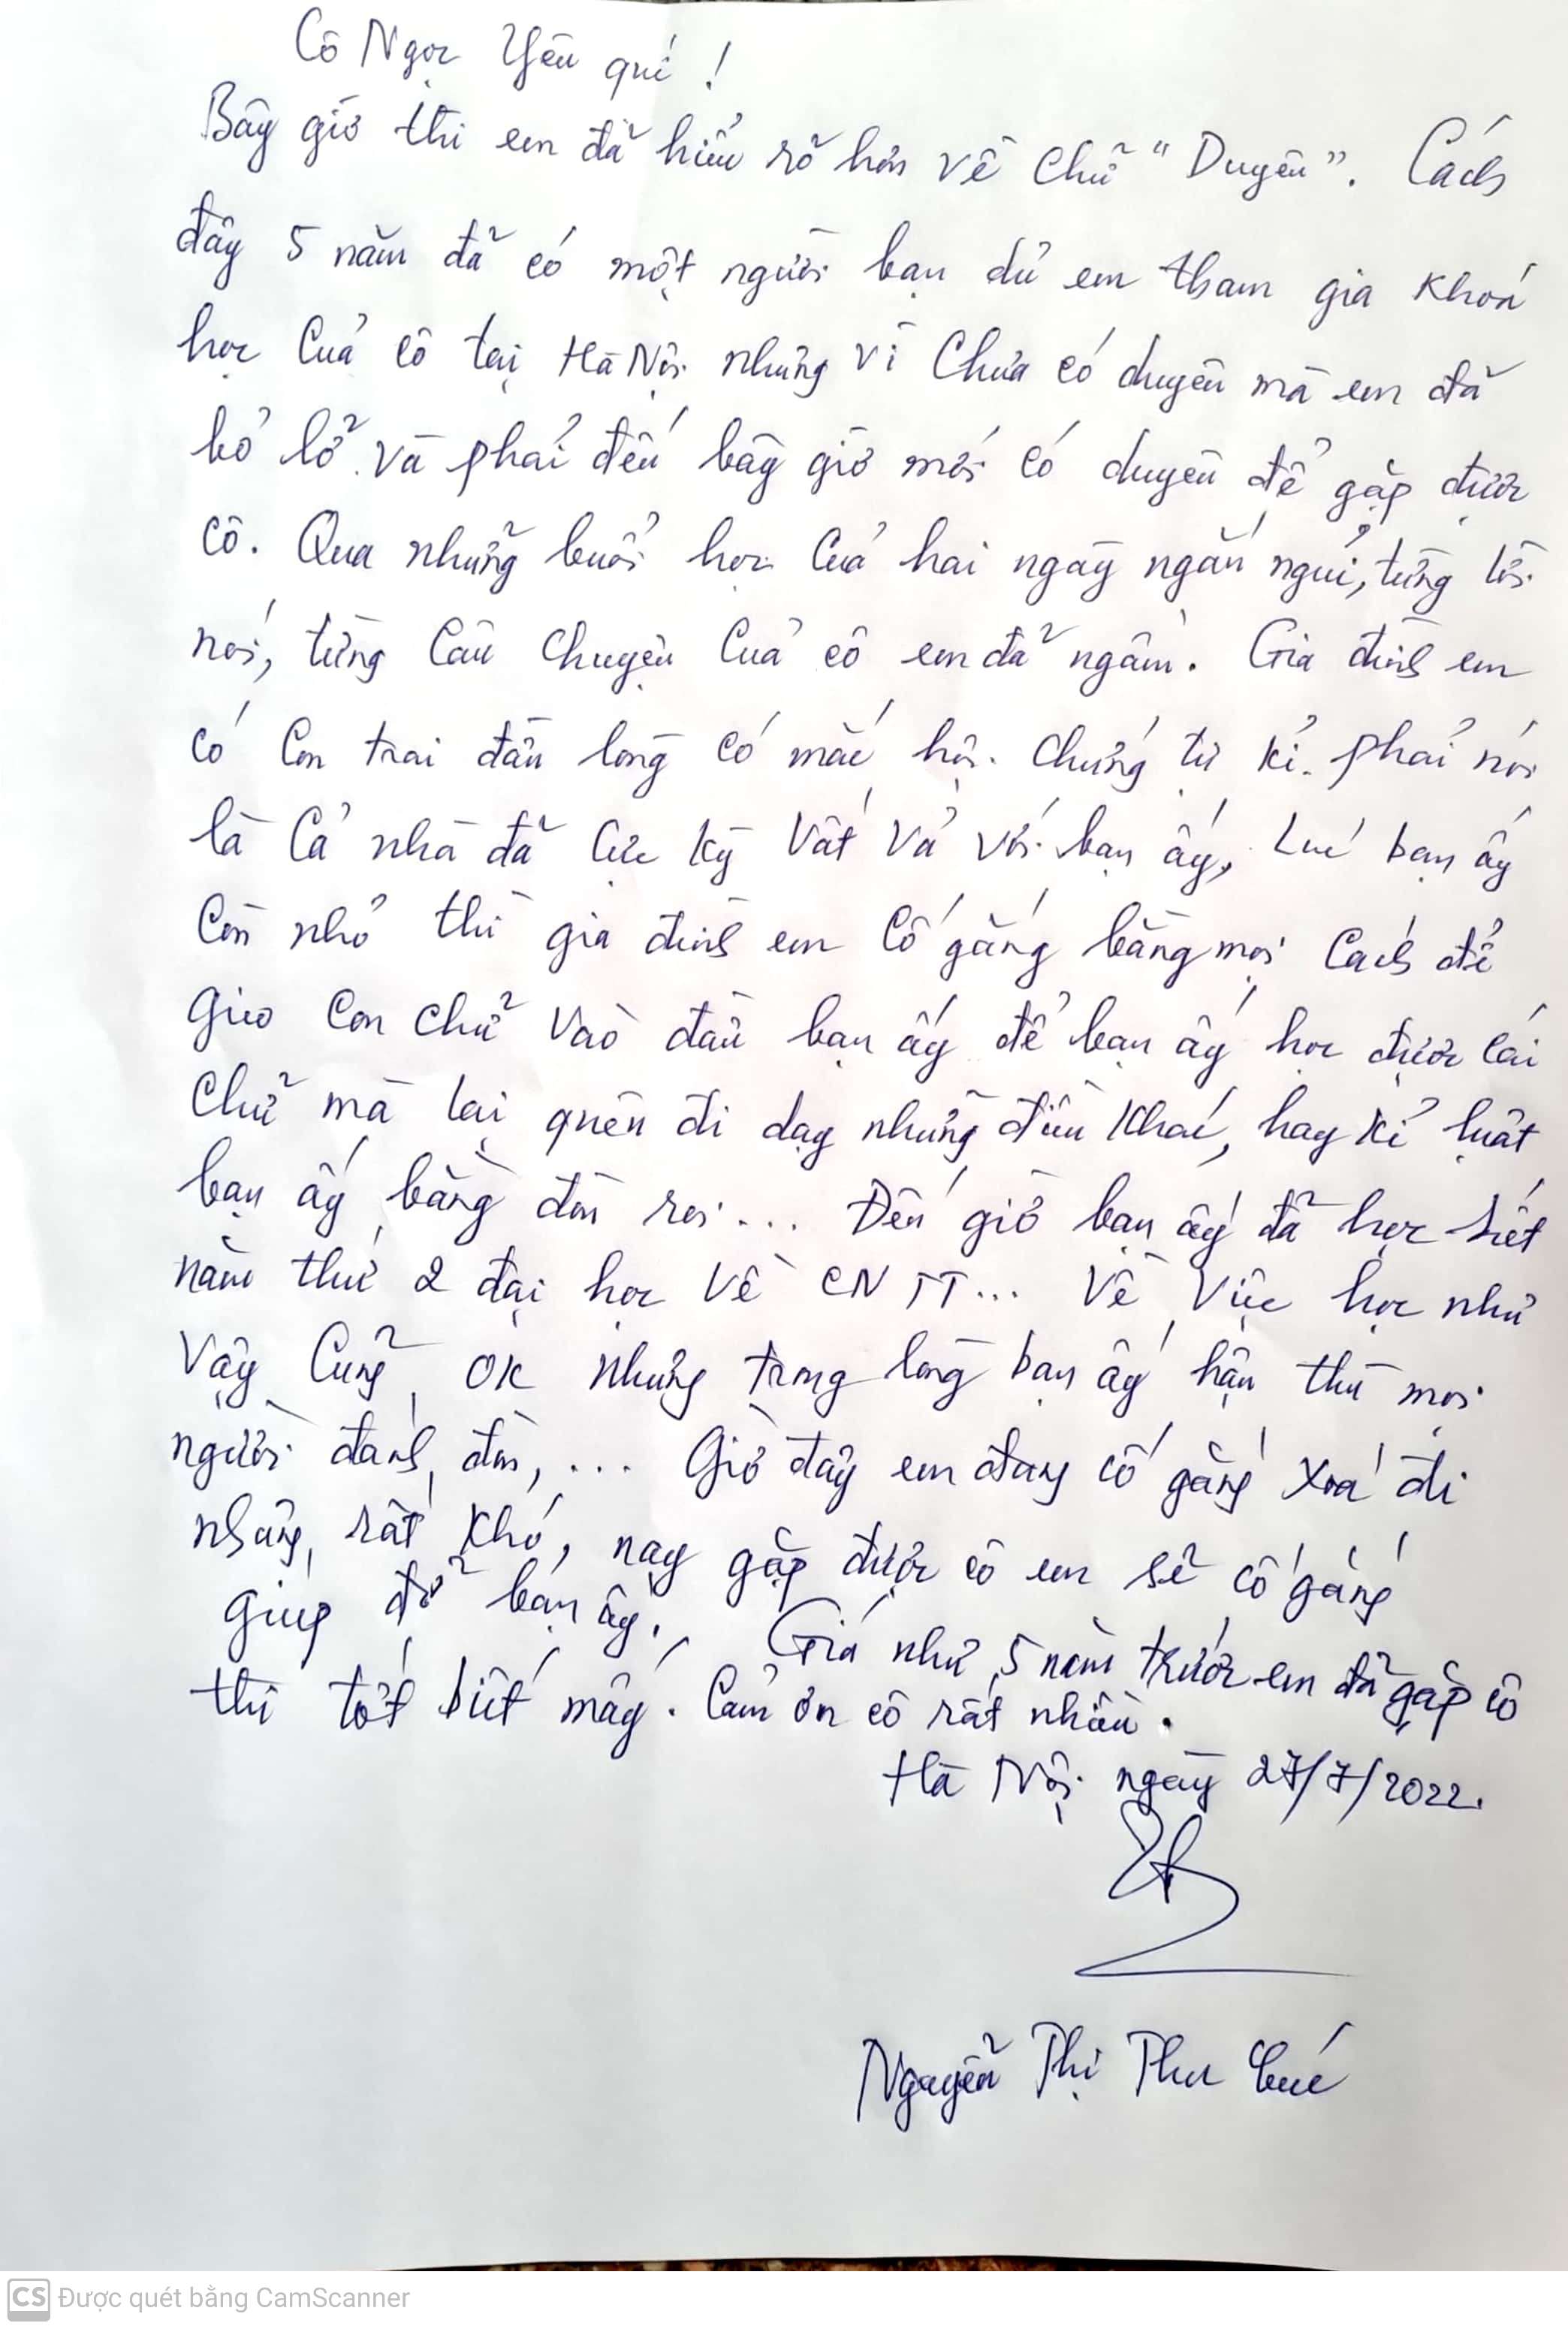 Cô Ngọc Yêu quí !
Bây giờ thì em đã hiểu rõ hơn về chữ "Duyên". Cách
đây 5 năm đã có một người bạn dủ em tham gia khoá
học của cô tại Hà Nội nhưng vì chưa có duyên mà em đã
bỏ lỡ và phải đến bây giờ mới có duyên để gặp được
cô. Qua những buổi học của hai ngày ngắn ngủi, từng lời
nói, từng câu chuyện của cô em đã ngấm. Gia đình em
có con trai đầu lòng có mắc hội chứng tự kỉ. phải nói
là cả nhà đã cực kỳ vất vả với bạn ấy, Lúc bạn ấy
còn nhỏ thì gia đình em cố gắng bằng mọi cách để
gieo con chữ vào đầu bạn ấy để bạn ấy học được cái
chữ mà lại quên đi dạy những điều khác, hay kỉ luật
bạn ấy bằng đòn roi... Đến giờ bạn ấy đã học hết
năm thứ 2 đại học về CNTT... Về việc học như
vậy cũng OK nhưng trong lòng bạn ấy hận thù mọi
người đánh, đòn, ... Giờ đây em đang cố gắng xoá đi
nhưng rất khó, nay gặp được cô em sẽ cố gắng
giúp đỡ bạn ấy. Giá như 5 năm trước em đã gặp cô
thì tốt biết mấy. Cảm ơn cô rất nhiều.
Hà Nội ngày 27/7/2022.
Nguyễn Thị Thu Cúc
CS Được quét bằng CamScanner